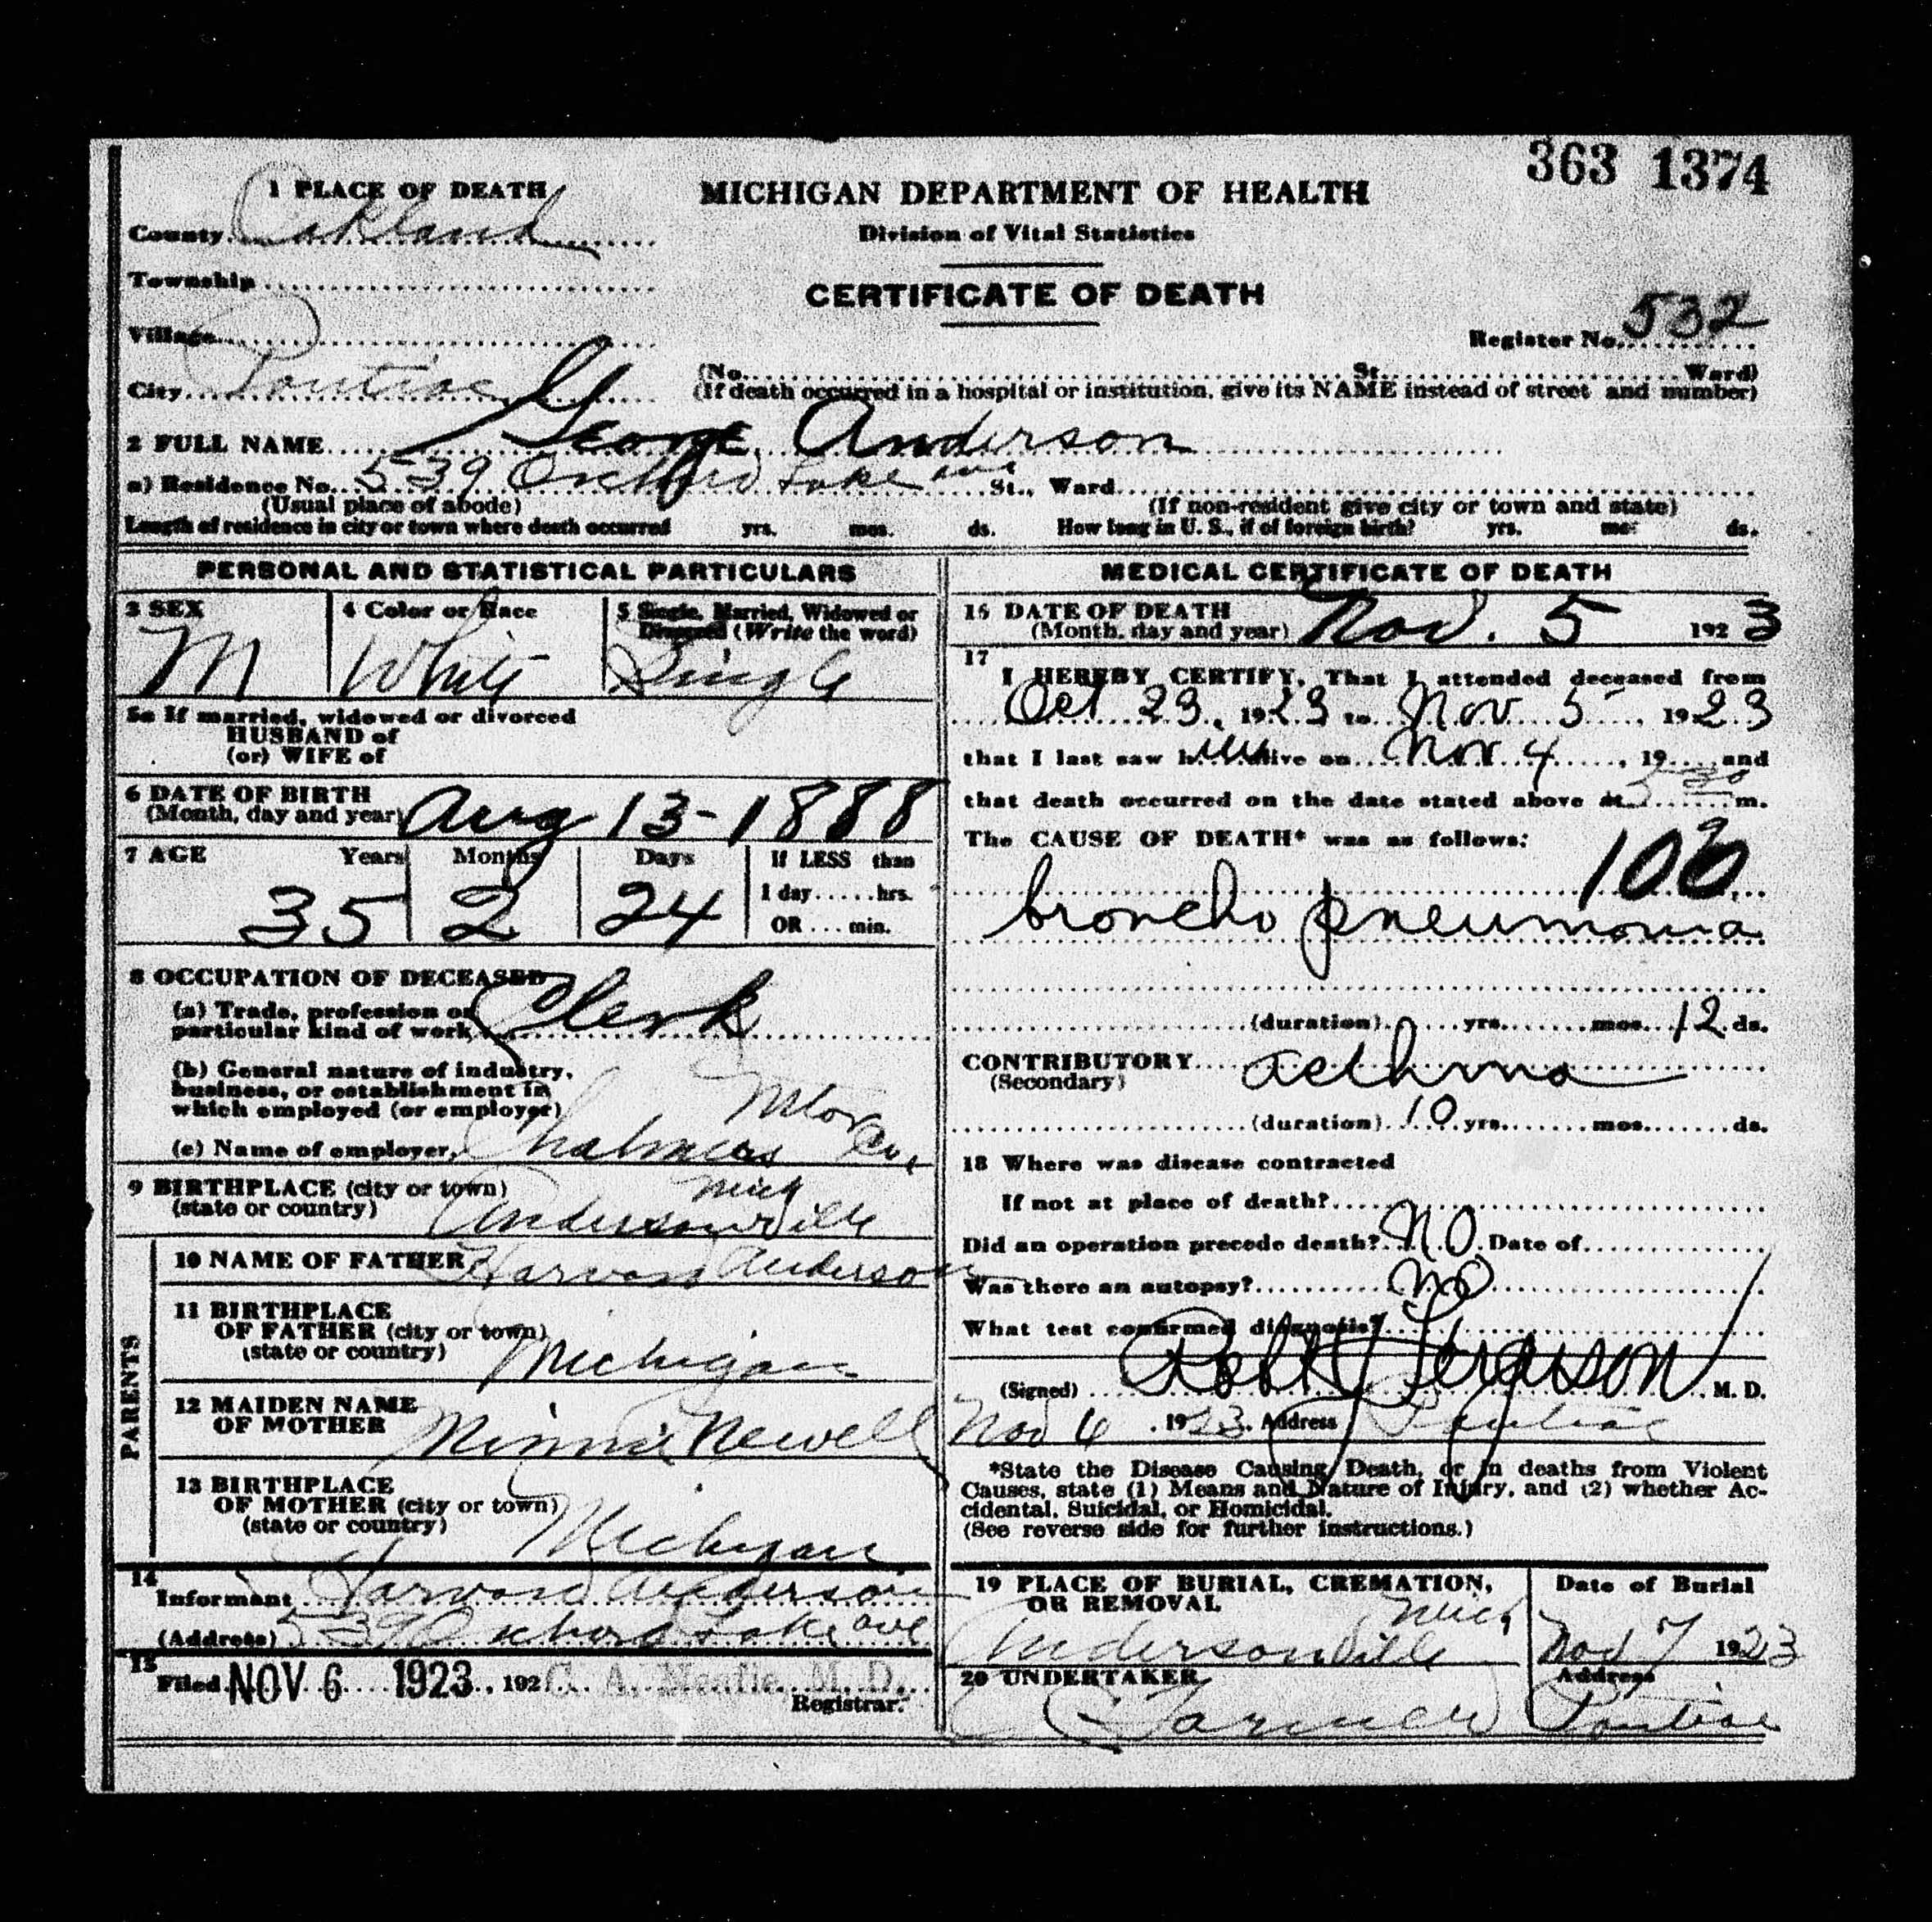 363 1374
1 PLACE OF DEATH
MICHIGAN DEPARTMENT OF HEALTH
Division of Vital Statistics
County Oakland
Township
CERTIFICATE OF DEATH
Village
Register No. 532
City Pontiac
(No. St. Ward)
(If death occurred in a hospital or institution, give its NAME instead of street and number)
2 FULL NAME George Anderson
a) Residence No. 539 Orchard Lake ave St., Ward
(Usual place of abode)
(If non-resident give city or town and state)
Length of residence in city or town where death occurred yrs. mos. ds. How long in U. S., if of foreign birth? yrs. mos. ds.
PERSONAL AND STATISTICAL PARTICULARS
3 SEX
M
4 Color or Race
White
5 Single, Married, Widowed or
Divorced (Write the word)
Single
5a If married, widowed or divorced
HUSBAND of
(or) WIFE of
6 DATE OF BIRTH
(Month, day and year) Aug 13-1888
7 AGE Years Months Days If LESS than
1 day......hrs.
OR....min.
35 2 24
8 OCCUPATION OF DECEASED
(a) Trade, profession or
particular kind of work Clerk
(b) General nature of industry,
business, or establishment in
which employed (or employer)
(c) Name of employer Chalmers Motor Co.
9 BIRTHPLACE (city or town)
(state or country) Andersonville Mich
PARENTS
10 NAME OF FATHER Harvard Anderson
11 BIRTHPLACE
OF FATHER (city or town)
(state or country) Michigan
12 MAIDEN NAME
OF MOTHER Minnie Newell
13 BIRTHPLACE
OF MOTHER (city or town)
(state or country) Michigan
14
Informant Harvard Anderson
(Address) 539 Orchard Lake ave
15
Filed NOV 6 1923, 192 C. A. Neafie, M. D.
Registrar.
MEDICAL CERTIFICATE OF DEATH
16 DATE OF DEATH
(Month, day and year) Nov. 5 1923
17
I HEREBY CERTIFY, That I attended deceased from
Oct 23, 1923 to Nov 5, 1923
that I last saw him alive on Nov 4, 19 and
that death occurred on the date stated above at 5 30 m.
The CAUSE OF DEATH* was as follows:
100
broncho pneumonia
(duration) yrs. mos. 12 ds.
CONTRIBUTORY asthma
(Secondary)
(duration) 10 yrs. mos. ds.
18 Where was disease contracted
If not at place of death?
Did an operation precede death? NO Date of
Was there an autopsy? NO
What test confirmed diagnosis?
(Signed) Robt Ferguson M. D.
Nov 6, 1923. Address Pontiac
*State the Disease Causing Death, or in deaths from Violent
Causes, state (1) Means and Nature of Injury, and (2) whether Ac-
cidental, Suicidal, or Homicidal.
(See reverse side for further instructions.)
19 PLACE OF BURIAL, CREMATION,
OR REMOVAL
Andersonville Mich
Date of Burial
Nov 7 1923
20 UNDERTAKER
Farmer
Address
Pontiac